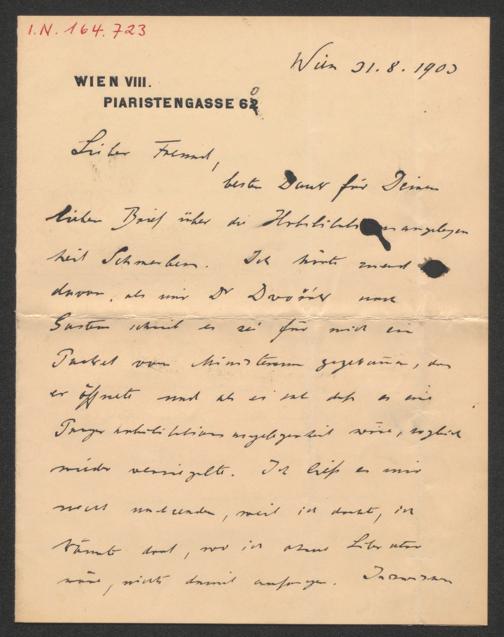 I.N. 164.723
Wien 31.8.1903
WIEN VIII.
PIARISTENGASSE 62
0
Lieber Freund,
besten Dank für Deinen
lieben Brief über die Habilitationsangelegen
heit Schmerbers. Ich hörte zuerst
davon, als mir Dr Dvořák nach
Gastein schrieb es sei für mich ein
Packet vom Ministerium gekommen, das
er öffnete und als er sah dass es eine
Prager Habilitationsangelegenheit wäre, sogleich
wieder versiegelte. Ich liess es mir
nicht nachsenden, weil ich dachte, ich
könnte dort, wo ich ohne Literatur
wäre, nichts damit anfangen. Inzwischen